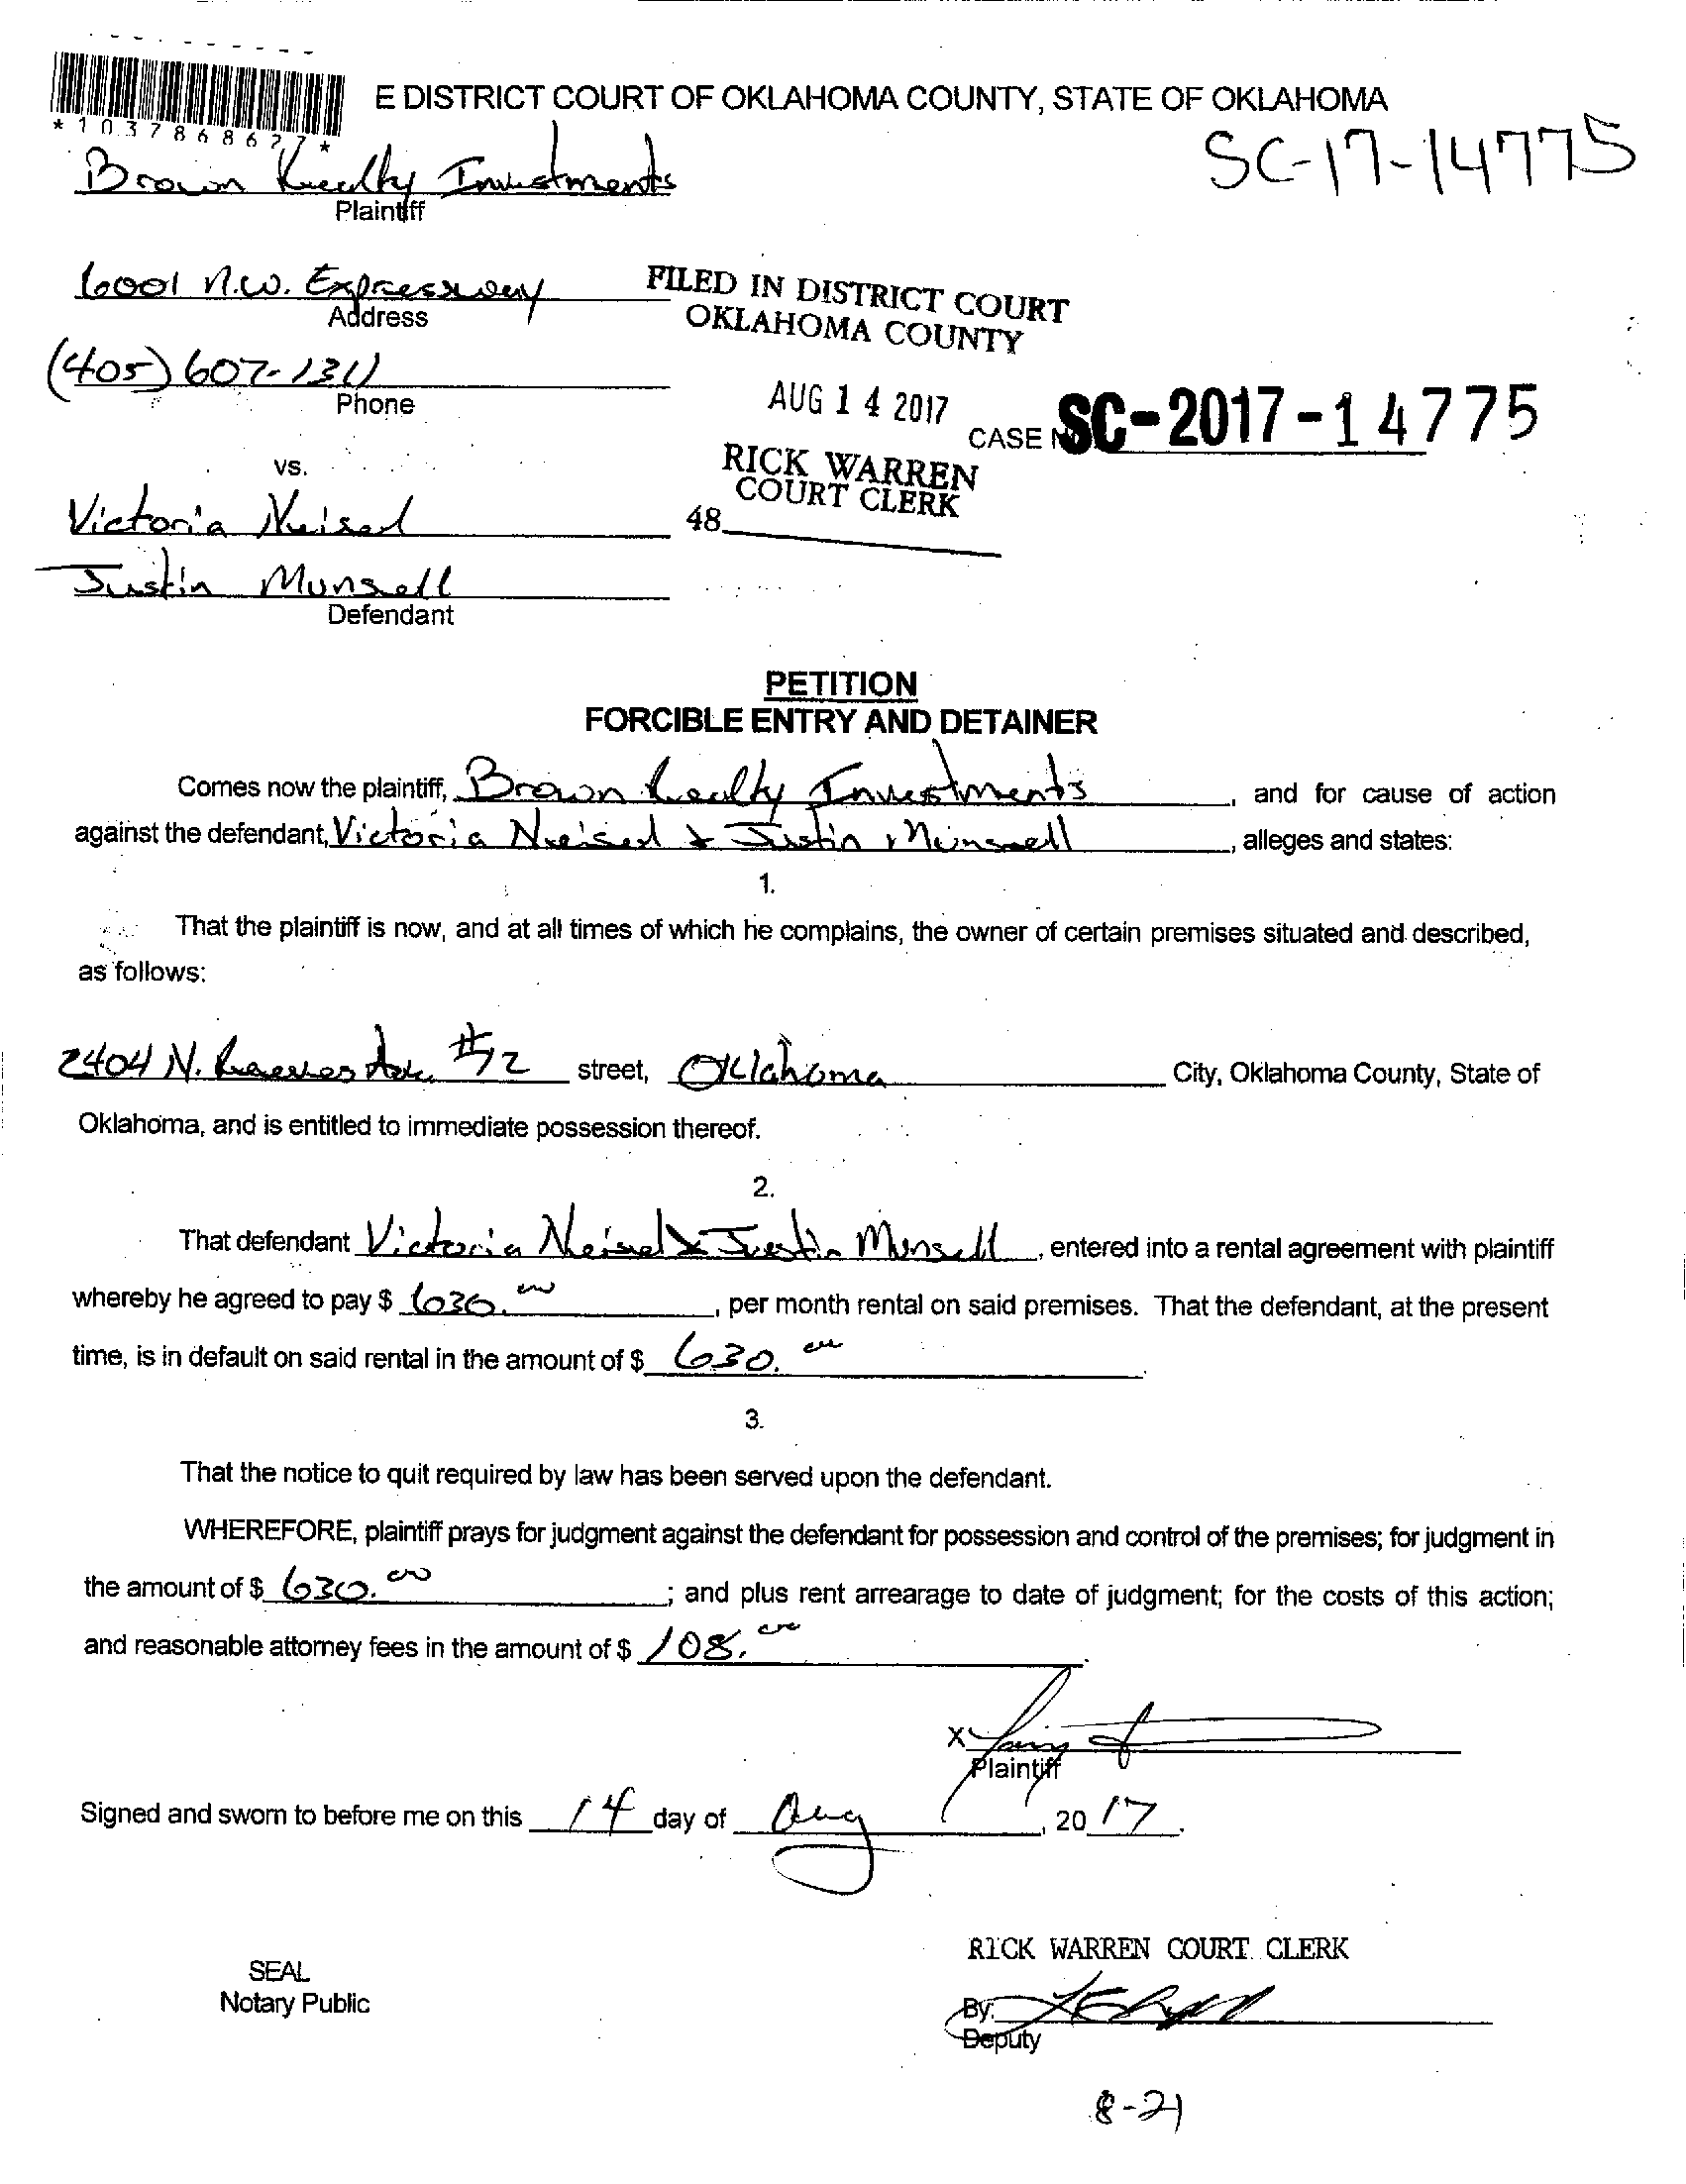 E DISTRICT COURT OF OKLAHOMA COUNTY, STATE OF OKLAHOMA
*1037868627*
SC-17-14775
Brown Realty Investments
Plaintiff
6001 N.W. Expressway
Address
FILED IN DISTRICT COURT
OKLAHOMA COUNTY
(405) 607-1311
Phone
AUG 14 2017
CASE N SC-2017-14775
RICK WARREN
COURT CLERK
48
vs.
Victoria Neisel
Justin Munsell
Defendant
PETITION
FORCIBLE ENTRY AND DETAINER
Comes now the plaintiff, Brown Realty Investments, and for cause of action
against the defendant, Victoria Neisel & Justin Munsell, alleges and states:
1.
That the plaintiff is now, and at all times of which he complains, the owner of certain premises situated and described,
as follows:
2404 N. #12 street, Oklahoma City, Oklahoma County, State of
Oklahoma, and is entitled to immediate possession thereof.
2.
That defendant Victoria Neisel & Justin Munsell, entered into a rental agreement with plaintiff
whereby he agreed to pay $ 630.00, per month rental on said premises. That the defendant, at the present
time, is in default on said rental in the amount of $ 630.00
3.
That the notice to quit required by law has been served upon the defendant.
WHEREFORE, plaintiff prays for judgment against the defendant for possession and control of the premises; for judgment in
the amount of $ 630.00; and plus rent arrearage to date of judgment; for the costs of this action;
and reasonable attorney fees in the amount of $ 108.00.
X
Plaintiff
Signed and sworn to before me on this 14 day of Aug, 2017.
RICK WARREN COURT CLERK
SEAL
Notary Public
By:
Deputy
8-21